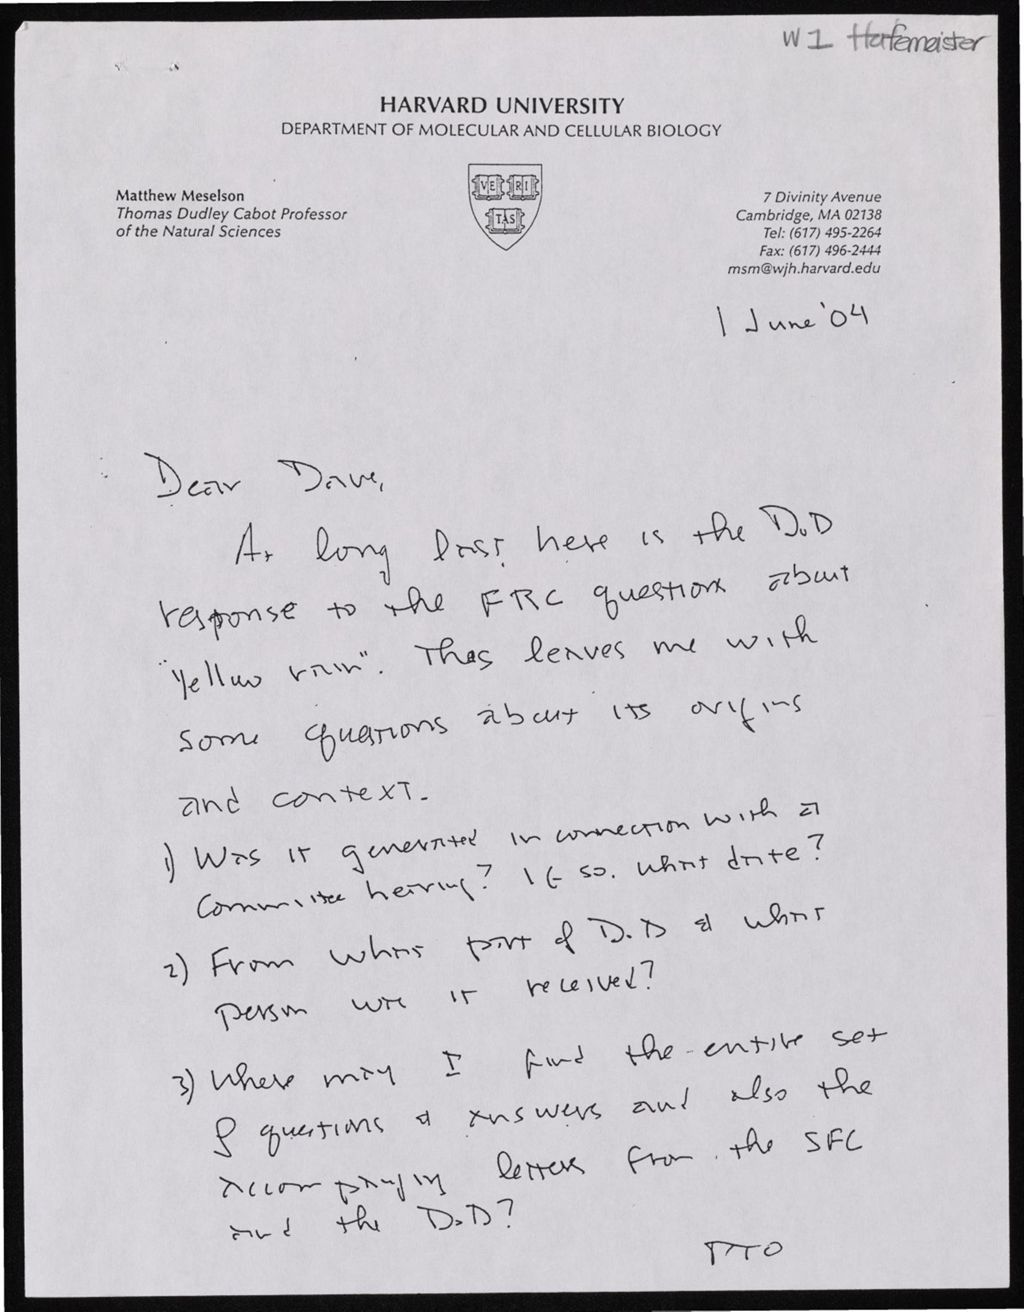 W1 Hafemeister
HARVARD UNIVERSITY
DEPARTMENT OF MOLECULAR AND CELLULAR BIOLOGY
VE RI
TAS
Matthew Meselson
Thomas Dudley Cabot Professor
of the Natural Sciences
7 Divinity Avenue
Cambridge, MA 02138
Tel: (617) 495-2264
Fax: (617) 496-2444
msm@wjh.harvard.edu
1 June '04
Dear Dave,
At long last, here is the DoD
response to the FRC questions about
"yellow rain". This leaves me with
some questions about its origins
and context.
1) Was it generated in connection with a
Committee hearing? If so. what date?
2) From what part of DoD & what
person was it received?
3) Where may I find the entire set
of questions & answers and also the
accompanying letters from the SFC
and the DoD?
PTO